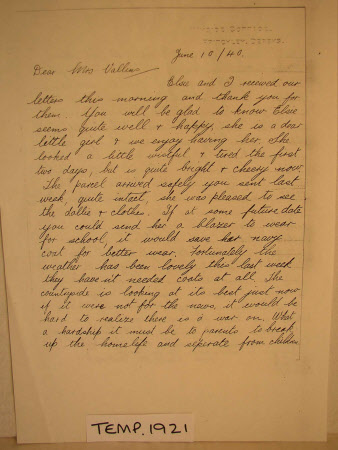 June 10/40.
Dear Mrs Vallins
Elsie and I received our
letters this morning and thank you for
them. You will be glad to know Elsie
seems quite well & happy, she is a dear
little girl & we enjoy having her. She
looked a little wistful & tired the first
two days, but is quite bright & cheery now.
The parcel arrived safely you sent last
week, quite intact, she was pleased to see
the dollie & clothes. If at some future date
you could send her a blazer to wear
for school, it would save her navy
coat for better wear, fortunately the
weather has been lovely this last week
they have'nt needed coats at all. The
countryside is looking at its best just now
if it were not for the news, it would be
hard to realize there is a war on. What
a hardship it must be to parents to break
up the homelife and seperate from children
TEMP.1921